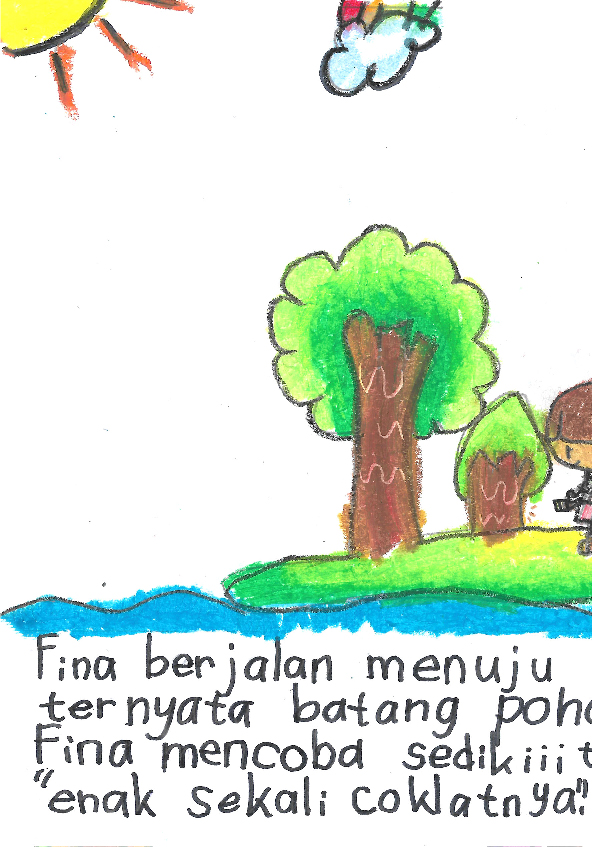 Fina berjalan menuju
ternyata batang poho
Fina mencoba sedikiiit
"enak sekali coklatnya".